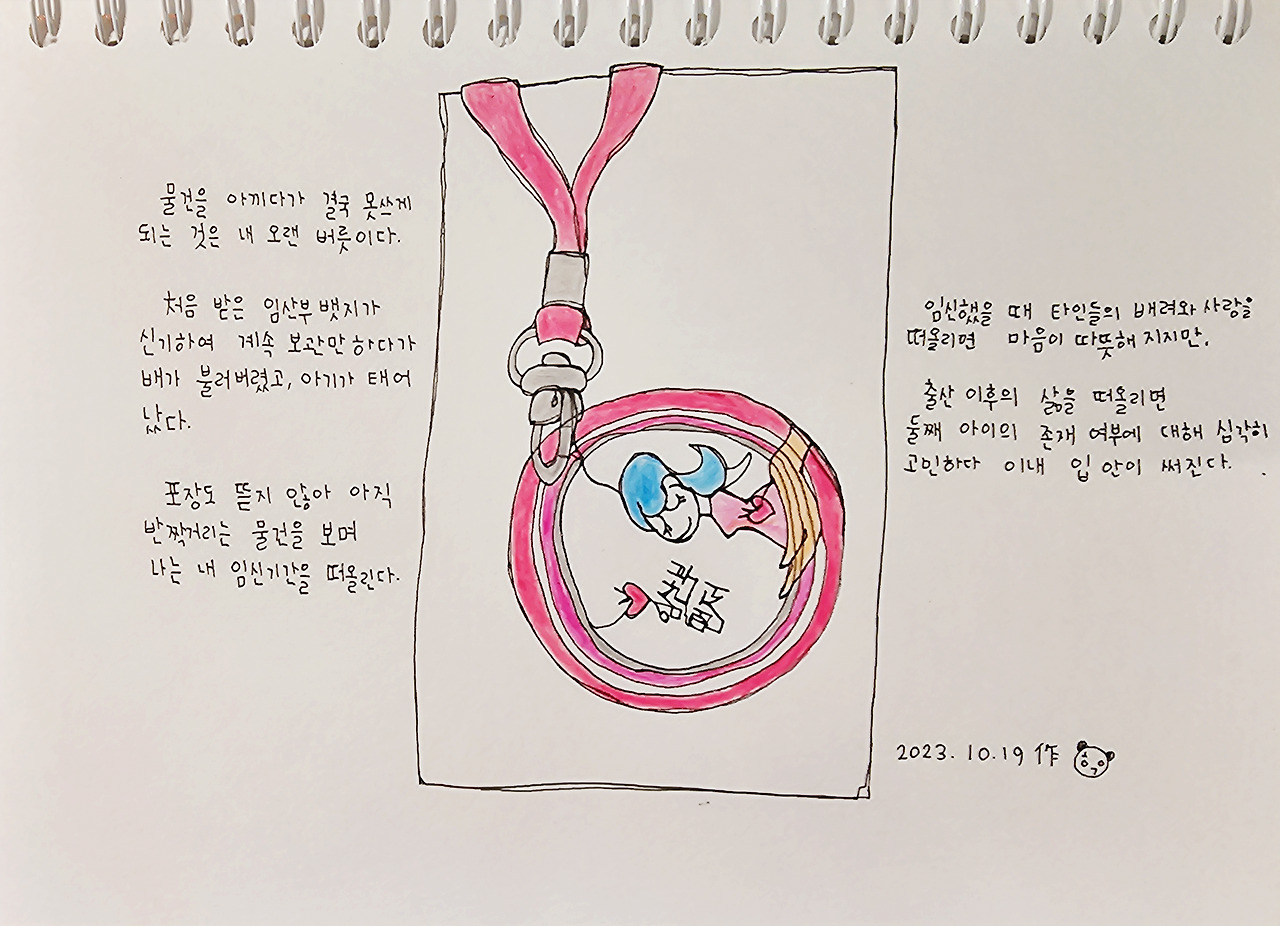 물건을 아끼다가 결국 못쓰게
되는 것은 내 오랜 버릇이다.
처음 받은 임산부 뱃지가
신기하여 계속 보관만 하다가
배가 불러버렸고, 아기가 태어
났다.
포장도 뜯지 않아 아직
반짝거리는 물건을 보며
나는 내 임신기간을 떠올린다.
임신했을 때 타인들의 배려와 사랑을
떠올리면 마음이 따뜻해 지지만,
출산 이후의 삶을 떠올리면
둘째 아이의 존재 여부에 대해 심각히
고민하다 이내 입 안이 써진다.
2023. 10. 19 作